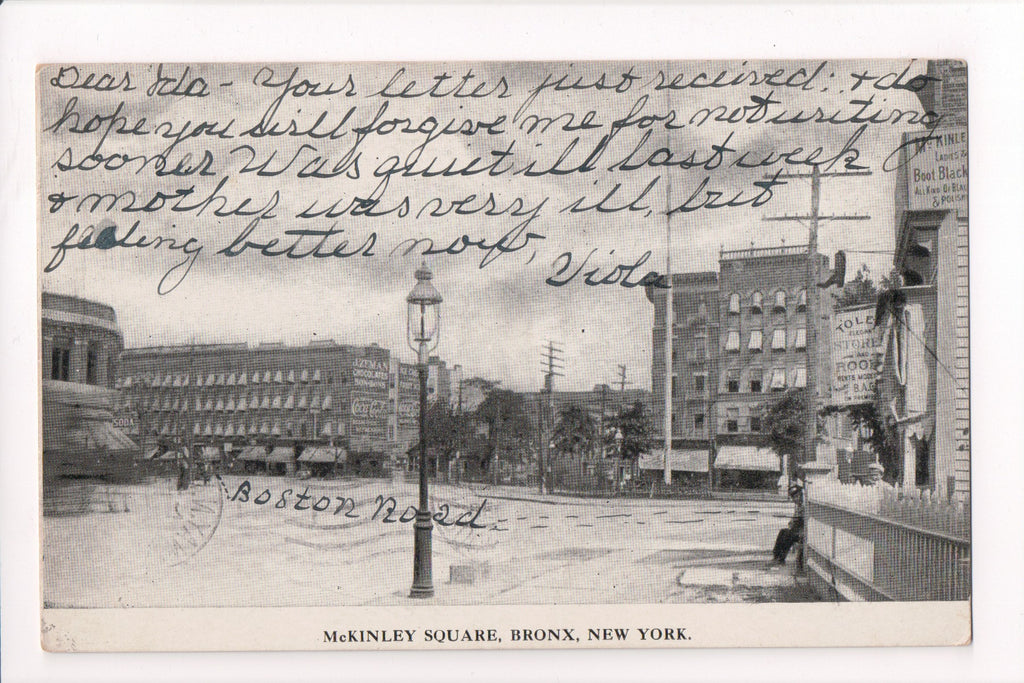 Dear Ida - Your letter just received: & do
hope you will forgive me for not writing
sooner Was quiet ill last week
& mother was very ill, but
feeling better now,
Viola
McKINLE
LADIES &
Boot Black
ALL KIND OF BLA
& POLISH
TOLE
STORE
AND
ROOF
SODA
Coca-Cola
Boston Road.
McKINLEY SQUARE, BRONX, NEW YORK.